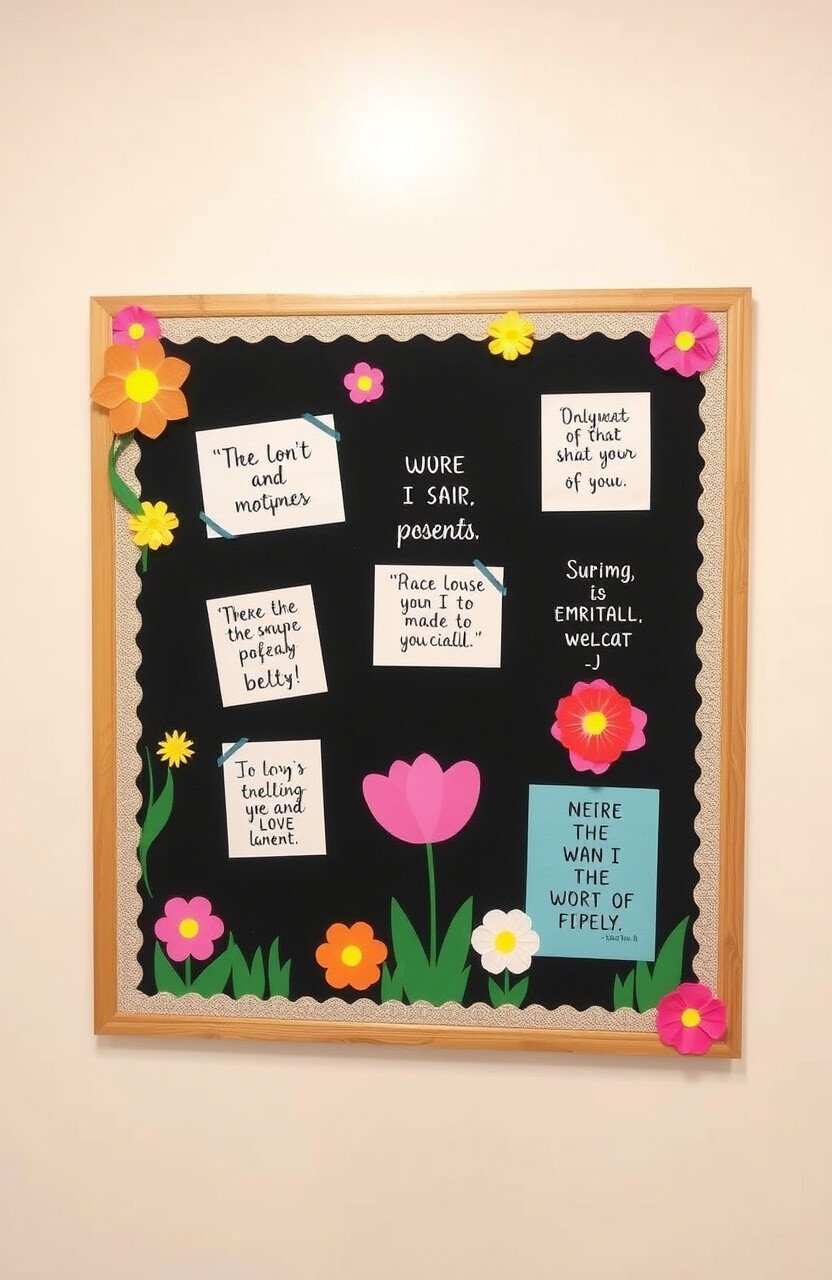 "The Lon't
and
motipmes
WURE
I SAIR.
posents.
of that
shat your
of you.
the skupe
betty!
"Race Louse
your I to
made to
you ciall."
Surimg,
is
EMRITALL,
WELCAT
-J
To Lovy's
tnellting
yre and
LOVE
lament.
NEIRE
THE
WAN I
THE
WORT OF
FIPELY.